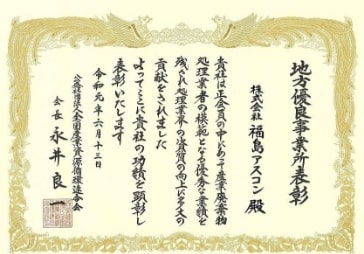 地方優良事業所表彰
株式会社 福島アスコン 殿
貴社は正会員の中にあって産業廃棄物
処理業者の模範となる優秀な業績を
残され処理業界の資質の向上に多大の
貢献をされました
よってここに貴社の功績を顕彰し
表彰いたします
令和元年六月十三日
公益社団法人全国産業資源循環連合会
会長 永井良一